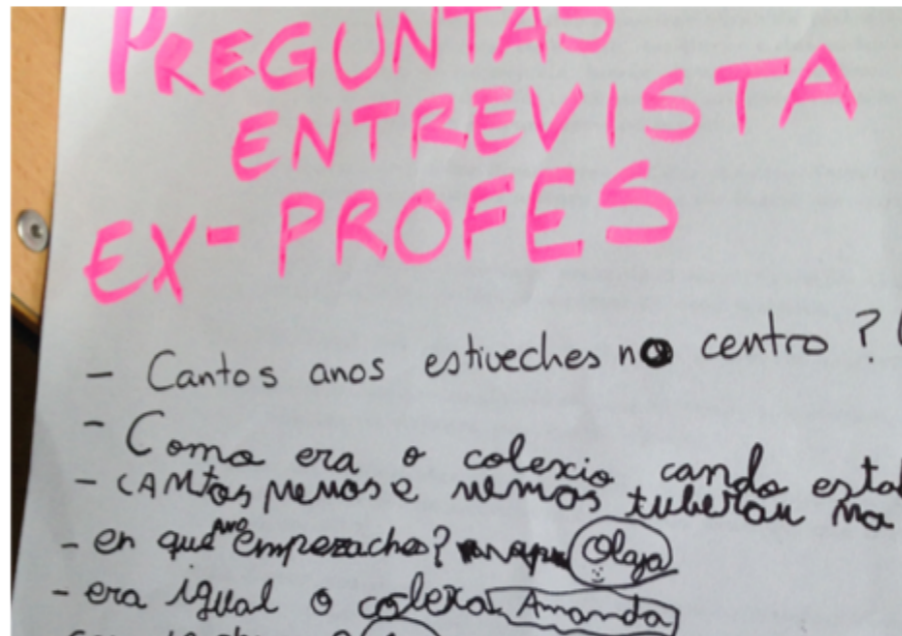 PREGUNTAS
ENTREVISTA
EX-PROFES
- Cantos anos estiveches no centro?
- Como era o colexio cando estab
- CANTOS nenos e nenas tuberon na
- en que ano empezaches? Olaja
- era igual o colexio Amanda